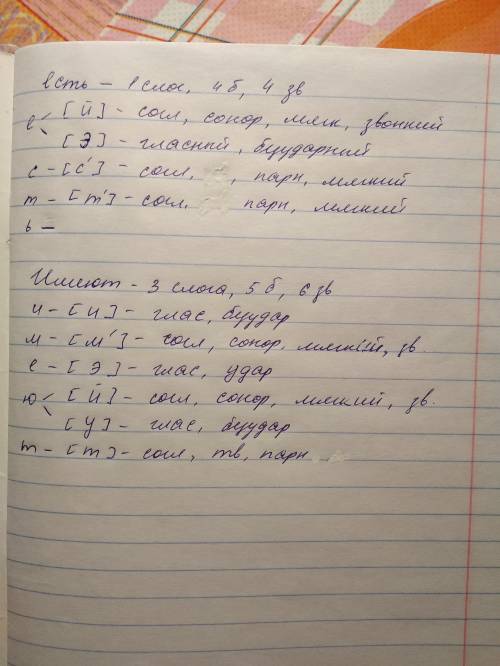 есть - 1 слог, 4 б, 4 зв
е [й] - согл, сонор, мягк, звонкий
[э] - гласный, буударний
с - [с'] - согл, , парн, мягкий
т - [т'] - согл, парн, мягкий
ь -
Имеют - 3 слога, 5 б, 6 зв
и - [и] - глас, буудар
м - [м'] - согл, сонор. мягкий, зв.
е - [э] - глас, удар
ю [й] - согл, сонор, мягкий, зв.
[у] - глас, буудар
т - [т] - согл, тв, парн